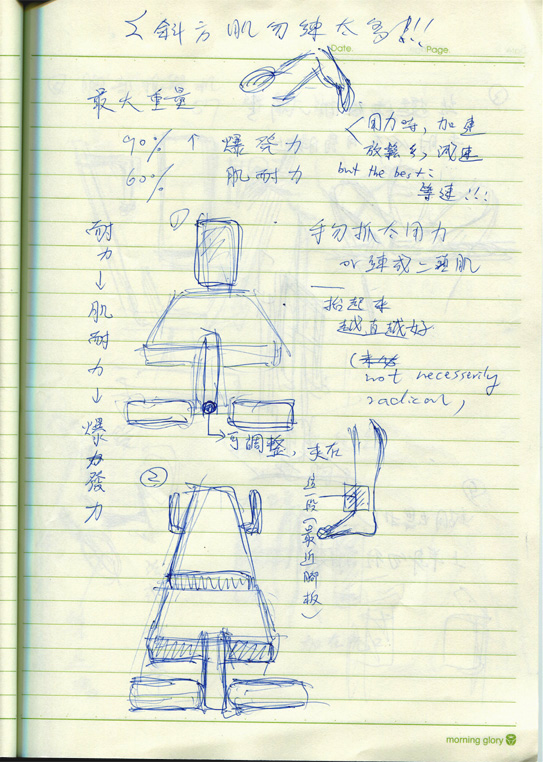 斜方肌勿練太多!!!
Date.
Page
最大重量
90% ↑ 爆發力
60% 肌耐力
用力時, 加速
放鬆 減速
but the best:
等速!!!
手勿抓太用力
or 練成二頭肌
抬起來
越直越好
(
not necesserily
radical,
耐力→肌耐力→爆發力
①
可調整, 夾在
這一段(最近腳板)
②
morning glory